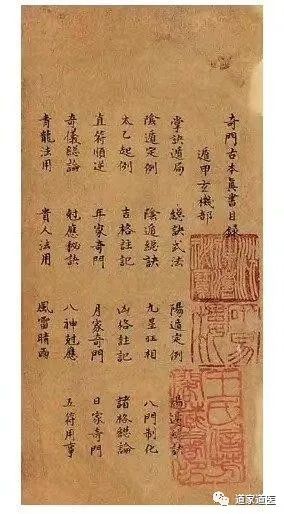 奇門古本眞書目錄
遁甲玄機部
掌訣遁局 總訣式法 陽遁定例 陽遁總訣
陰遁定例 陰遁總訣 九星旺相 八門制化
太乙起例 吉格註記 凶格註記 諸格總論
直符順逆 年家奇門 月家奇門 日家奇門
奇儀總論 尅應秘訣 八神尅應 五符用事
青龍法用 貴人法用 風雷晴雨
道家道医